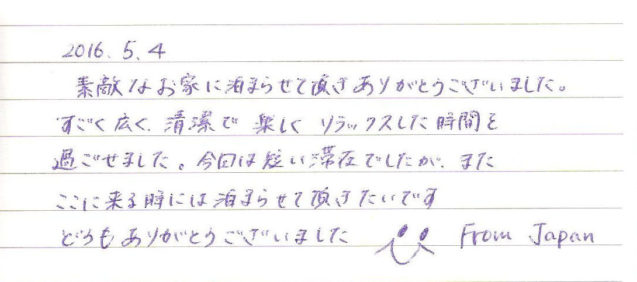 2016.5.4
素敵なお家に泊まらせて頂きありがとうございました。
すごく広く、清潔で楽しくリラックスした時間を
過ごせました。今回は短い滞在でしたが、また
ここに来る時には泊まらせて頂きたいです
どうもありがとうございました From Japan